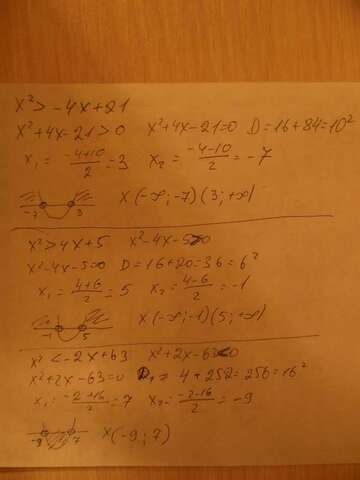 x² > -4x+21
x²+4x-21>0 x²+4x-21=0 D=16+84=10²
x₁=(-4+10)/2=3 x₂=(-4-10)/2=-7
-7 3 x(-∞;-7)(3;+∞)
x²>4x+5 x²-4x-5>0
x²-4x-5=0 D=16+20=36=6²
x₁=(4+6)/2=5 x₂=(4-6)/2=-1
-1 5 x(-∞;-1)(5;+∞)
x²<-2x+63 x²+2x-63<0
x²+2x-63=0 D=4+252=256=16²
x₁=(-2+16)/2=7 x₂=(-2-16)/2=-9
-9 7 x(-9;7)